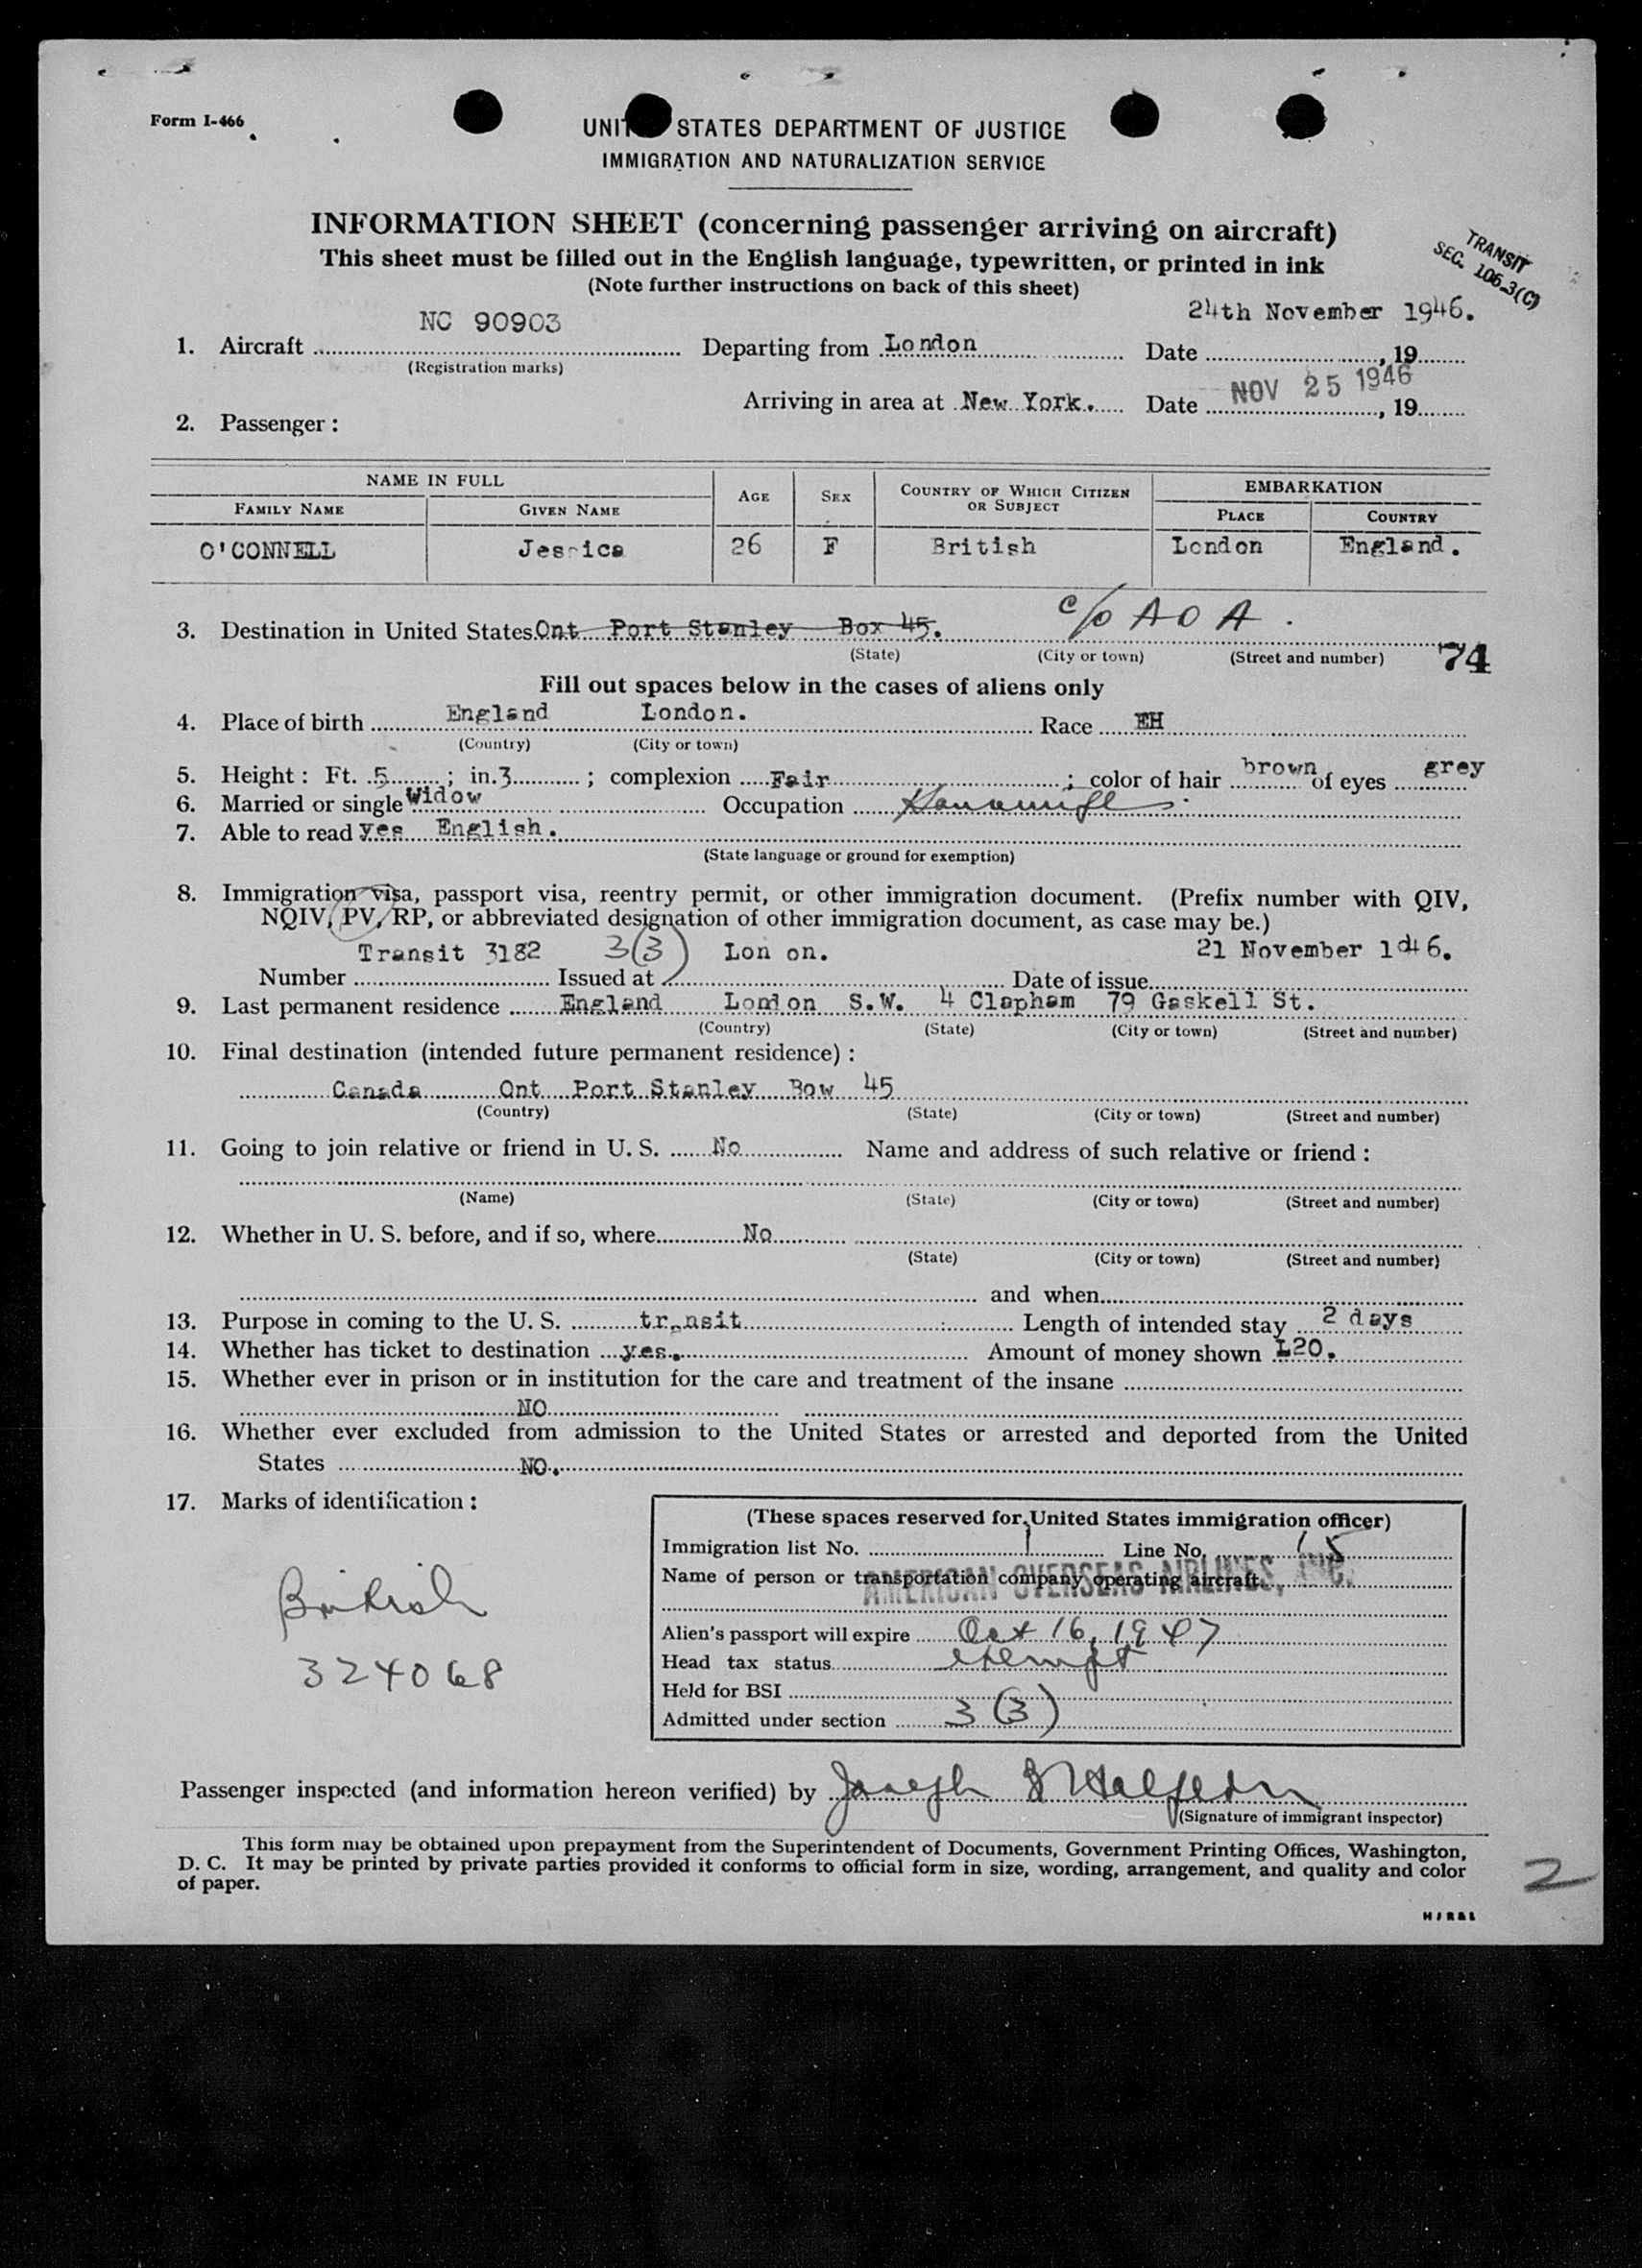 Form I-466
UNITED STATES DEPARTMENT OF JUSTICE
IMMIGRATION AND NATURALIZATION SERVICE
INFORMATION SHEET (concerning passenger arriving on aircraft)
This sheet must be filled out in the English language, typewritten, or printed in ink
(Note further instructions on back of this sheet)
TRANSIT
SEC. 106.3(C)
NC 90903
24th November 1946.
1. Aircraft Departing from London Date , 19
(Registration marks)
NOV 25 1946
Arriving in area at New York. Date , 19
2. Passenger :
NAME IN FULL
FAMILY NAME GIVEN NAME AGE SEX COUNTRY OF WHICH CITIZEN OR SUBJECT EMBARKATION PLACE COUNTRY
O'CONNELL Jessica 26 F British London England.
c/o A O A .
3. Destination in United States Ont Port Stanley Box 45.
(State) (City or town) (Street and number) 74
Fill out spaces below in the cases of aliens only
4. Place of birth England London. Race EH
(Country) (City or town)
5. Height : Ft. 5 ; in. 3 ; complexion Fair ; color of hair brown of eyes grey
6. Married or single Widow Occupation
7. Able to read yes English.
(State language or ground for exemption)
8. Immigration visa, passport visa, reentry permit, or other immigration document. (Prefix number with QIV,
NQIV, PV, RP, or abbreviated designation of other immigration document, as case may be.)
Transit 3182 3(3) Lon on. 21 November 1946.
Number Issued at Date of issue
9. Last permanent residence England London S.W. 4 Clapham 79 Gaskell St.
(Country) (State) (City or town) (Street and number)
10. Final destination (intended future permanent residence) :
Canada Ont Port Stanley Bow 45
(Country) (State) (City or town) (Street and number)
11. Going to join relative or friend in U. S. No Name and address of such relative or friend :
(Name) (State) (City or town) (Street and number)
12. Whether in U. S. before, and if so, where No
(State) (City or town) (Street and number)
and when
13. Purpose in coming to the U. S. transit Length of intended stay 2 days
14. Whether has ticket to destination yes. Amount of money shown £20.
15. Whether ever in prison or in institution for the care and treatment of the insane
NO
16. Whether ever excluded from admission to the United States or arrested and deported from the United
States NO.
17. Marks of identification :
British
324068
(These spaces reserved for United States immigration officer)
Immigration list No. 1 Line No. 15
Name of person or transportation company operating aircraft
AMERICAN OVERSEAS AIRLINES, INC.
Alien's passport will expire Oct 16, 1947
Head tax status exempt
Held for BSI
Admitted under section 3(3)
Passenger inspected (and information hereon verified) by Joseph
(Signature of immigrant inspector)
This form may be obtained upon prepayment from the Superintendent of Documents, Government Printing Offices, Washington,
D. C. It may be printed by private parties provided it conforms to official form in size, wording, arrangement, and quality and color
of paper.
2